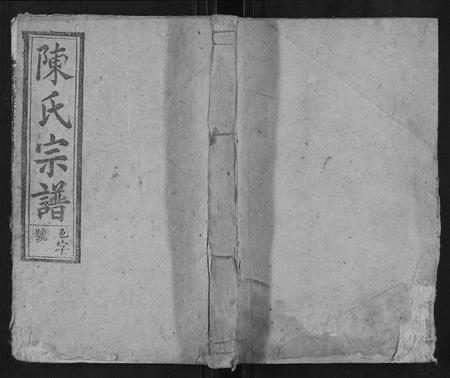 陳氏宗譜
邑字
號